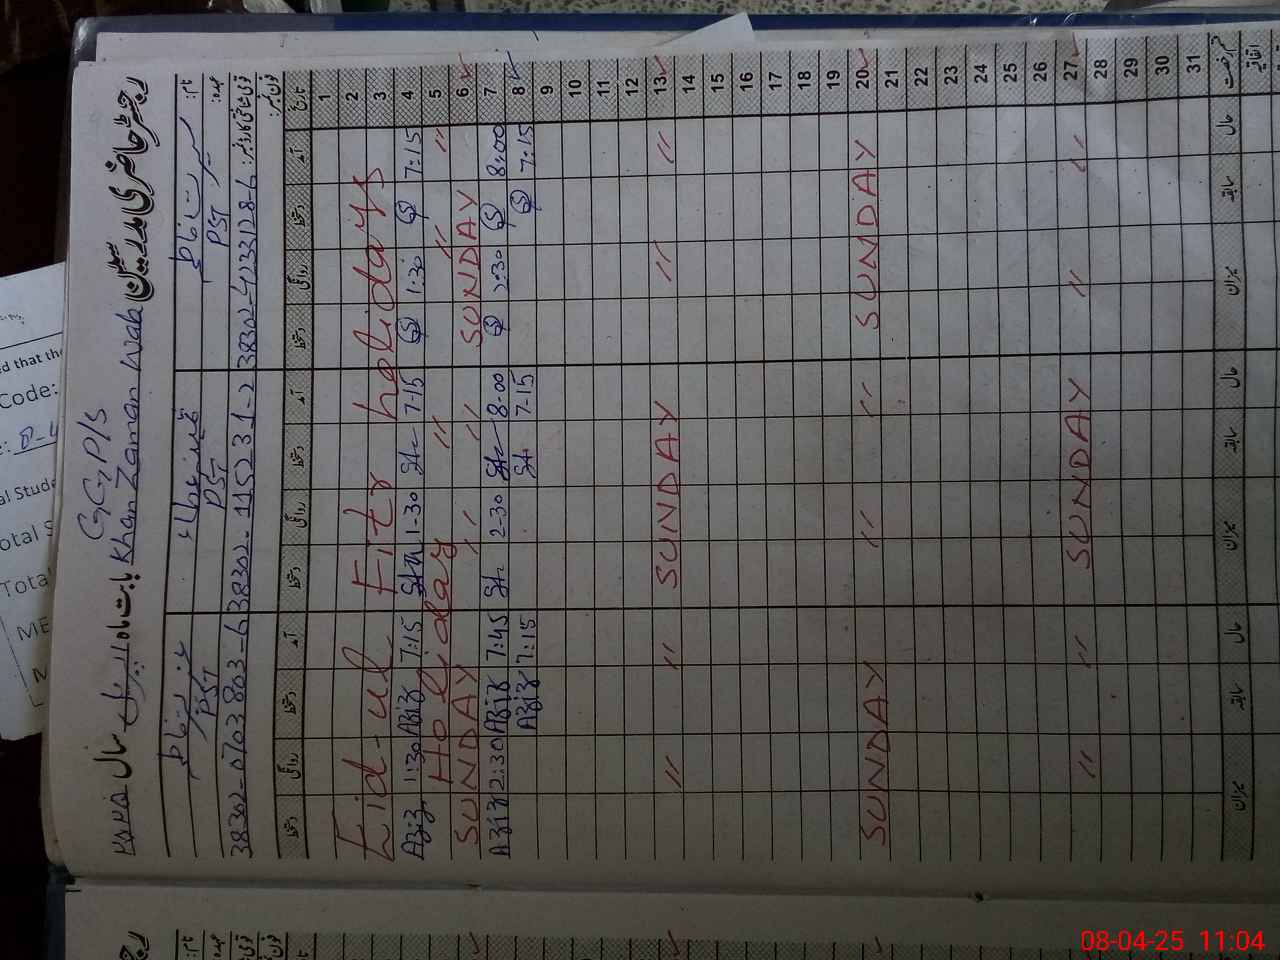 GGP/S
رجسٹر حاضری مدرسین Khan Zaman Wah بابت ماہ اپریل سال ۲۰۲۵
نام:
عہدہ: PST PST PST
قومی شناختی کارڈ نمبر: 38302-4233128-6 38302-115231-2 38302-0703803-6
فون نمبر:
تاریخ آمد دستخط روانگی دستخط آمد دستخط روانگی دستخط آمد دستخط روانگی دستخط
1
2
3 Eid-ul Fitr holidays
4 7:15 1:30 7-15 1-30 7:15 Aziz 1:30 Aziz
5 " " " Holiday
6 SUNDAY " " SUNDAY
7 8:00 2:30 8-00 2-30 7:45 Aziz 2:30 Aziz
8 7:15 7-15 7:15 Aziz
9
10
11
12
13 " " SUNDAY " "
14
15
16
17
18
19
20 SUNDAY " " SUNDAY
21
22
23
24
25
26
27 " " SUNDAY " "
28
29
30
31
قسم رخصت اتفاقیہ حال سابقہ میزان حال سابقہ میزان حال سابقہ میزان
ed that the
Code:
al Stude
otal S
Total
ME
نام:
عہدہ:
08-04-25 11:04